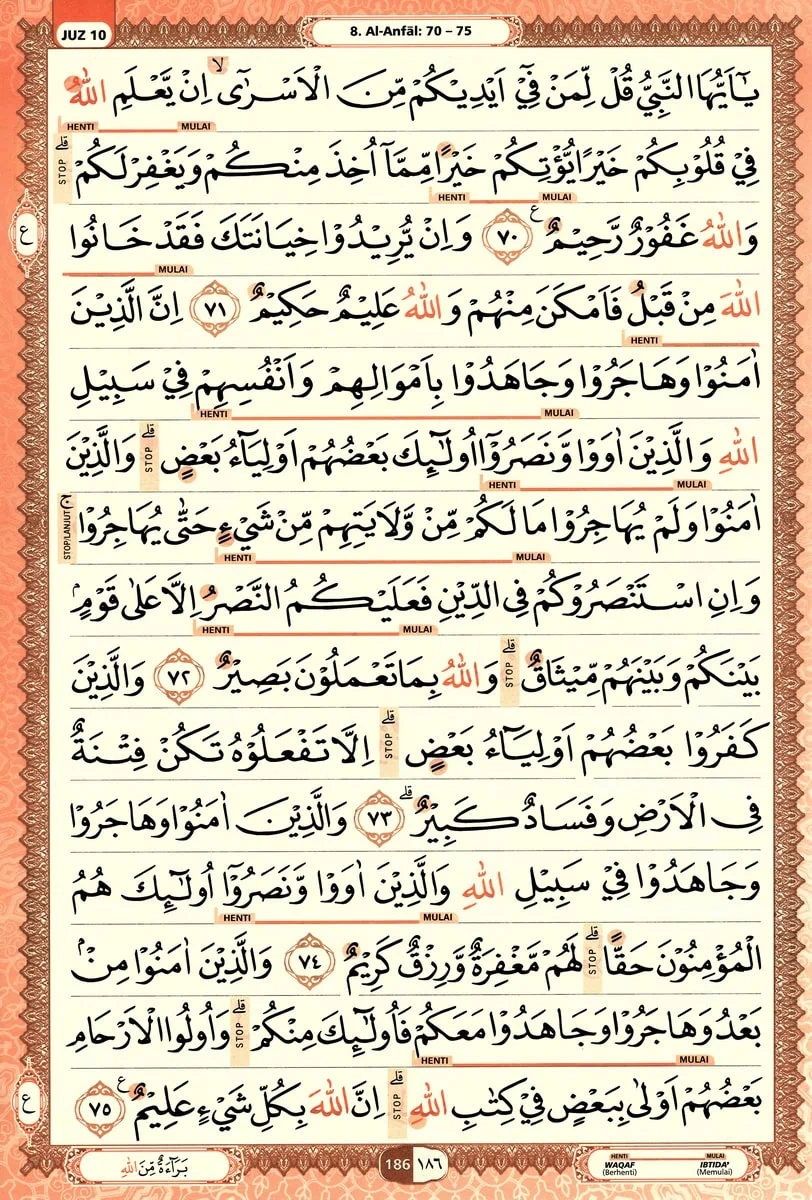 JUZ 10
8. Al-Anfāl: 70 – 75
يٰٓاَيُّهَا النَّبِيُّ قُلْ لِّمَنْ فِيْٓ اَيْدِيْكُمْ مِّنَ الْاَسْرٰٓىۙ اِنْ يَّعْلَمِ اللّٰهُ
HENTI MULAI
فِيْ قُلُوْبِكُمْ خَيْرًا يُّؤْتِكُمْ خَيْرًا مِّمَّآ اُخِذَ مِنْكُمْ وَيَغْفِرْ لَكُمْۗ STOP
HENTI MULAI
وَاللّٰهُ غَفُوْرٌ رَّحِيْمٌ ࣖ ٧٠ وَاِنْ يُّرِيْدُوْا خِيَانَتَكَ فَقَدْ خَانُوا
ع
MULAI
اللّٰهَ مِنْ قَبْلُ فَاَمْكَنَ مِنْهُمْ وَاللّٰهُ عَلِيْمٌ حَكِيْمٌ ٧١ اِنَّ الَّذِيْنَ
HENTI
اٰمَنُوْا وَهَاجَرُوْا وَجَاهَدُوْا بِاَمْوَالِهِمْ وَاَنْفُسِهِمْ فِيْ سَبِيْلِ
HENTI MULAI
اللّٰهِ وَالَّذِيْنَ اٰوَوْا وَّنَصَرُوْٓا اُولٰۤىِٕكَ بَعْضُهُمْ اَوْلِيَاۤءُ بَعْضٍۗ STOP وَالَّذِيْنَ
HENTI MULAI
اٰمَنُوْا وَلَمْ يُهَاجِرُوْا مَا لَكُمْ مِّنْ وَّلَايَتِهِمْ مِّنْ شَيْءٍ حَتّٰى يُهَاجِرُوْاۚ STOP/LANJUT
HENTI MULAI
وَاِنِ اسْتَنْصَرُوْكُمْ فِى الدِّيْنِ فَعَلَيْكُمُ النَّصْرُ اِلَّا عَلٰى قَوْمٍۢ
HENTI MULAI
بَيْنَكُمْ وَبَيْنَهُمْ مِّيْثَاقٌۗ STOP وَاللّٰهُ بِمَا تَعْمَلُوْنَ بَصِيْرٌ ٧٢ وَالَّذِيْنَ
كَفَرُوْا بَعْضُهُمْ اَوْلِيَاۤءُ بَعْضٍۗ STOP اِلَّا تَفْعَلُوْهُ تَكُنْ فِتْنَةٌ
فِى الْاَرْضِ وَفَسَادٌ كَبِيْرٌۗ ٧٣ وَالَّذِيْنَ اٰمَنُوْا وَهَاجَرُوْا
وَجَاهَدُوْا فِيْ سَبِيْلِ اللّٰهِ وَالَّذِيْنَ اٰوَوْا وَّنَصَرُوْٓا اُولٰۤىِٕكَ هُمُ
HENTI MULAI
الْمُؤْمِنُوْنَ حَقًّاۗ STOP لَهُمْ مَّغْفِرَةٌ وَّرِزْقٌ كَرِيْمٌ ٧٤ وَالَّذِيْنَ اٰمَنُوْا مِنْۢ
بَعْدُ وَهَاجَرُوْا وَجَاهَدُوْا مَعَكُمْ فَاُولٰۤىِٕكَ مِنْكُمْۗ STOP وَاُولُوا الْاَرْحَامِ
HENTI MULAI
بَعْضُهُمْ اَوْلٰى بِبَعْضٍ فِيْ كِتٰبِ اللّٰهِۗ STOP اِنَّ اللّٰهَ بِكُلِّ شَيْءٍ عَلِيْمٌ ࣖ ٧٥
ع
بَرَاۤءَةٌ مِّنَ اللّٰهِ
186 ١٨٦
HENTI MULAI
WAQAF IBTIDA'
(Berhenti) (Memulai)